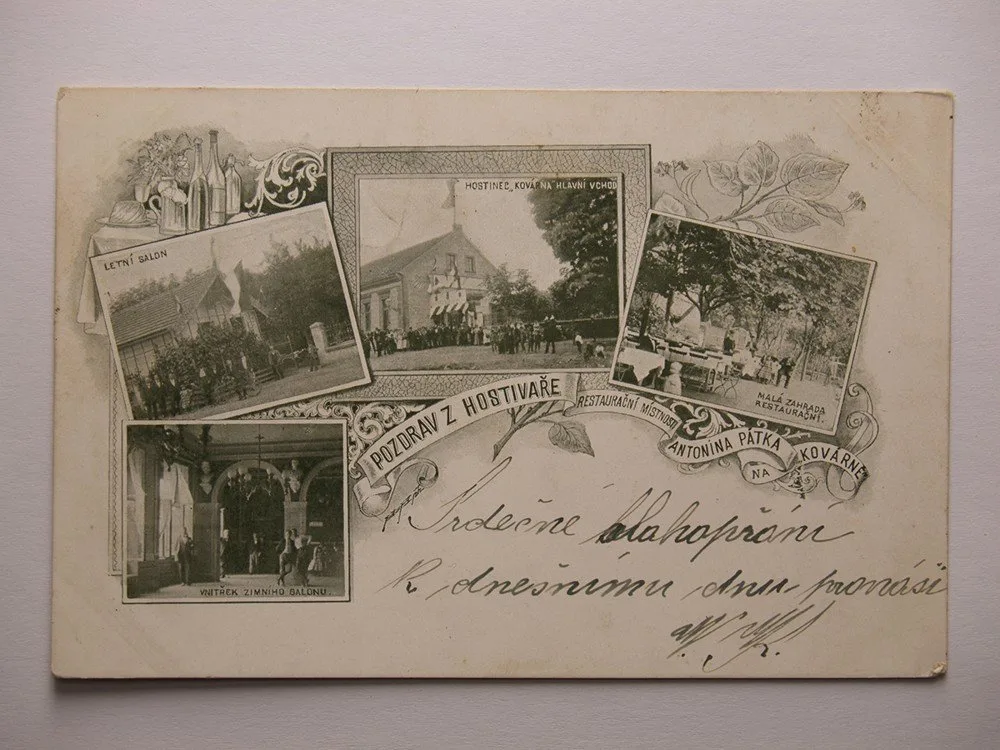 LETNÍ SALON
HOSTINEC „KOVÁRNA HLAVNÍ VCHOD
MALÁ ZAHRADA
RESTAURAČNÍ.
VNITŘEK ZIMNÍHO SALONU.
POZDRAV Z HOSTIVAŘE
RESTAURAČNÍ MÍSTNOSTI
ANTONINA PÁTKA
NA
KOVÁRNĚ
Srdečné blahopřání
K dnešnímu dnu pronáší